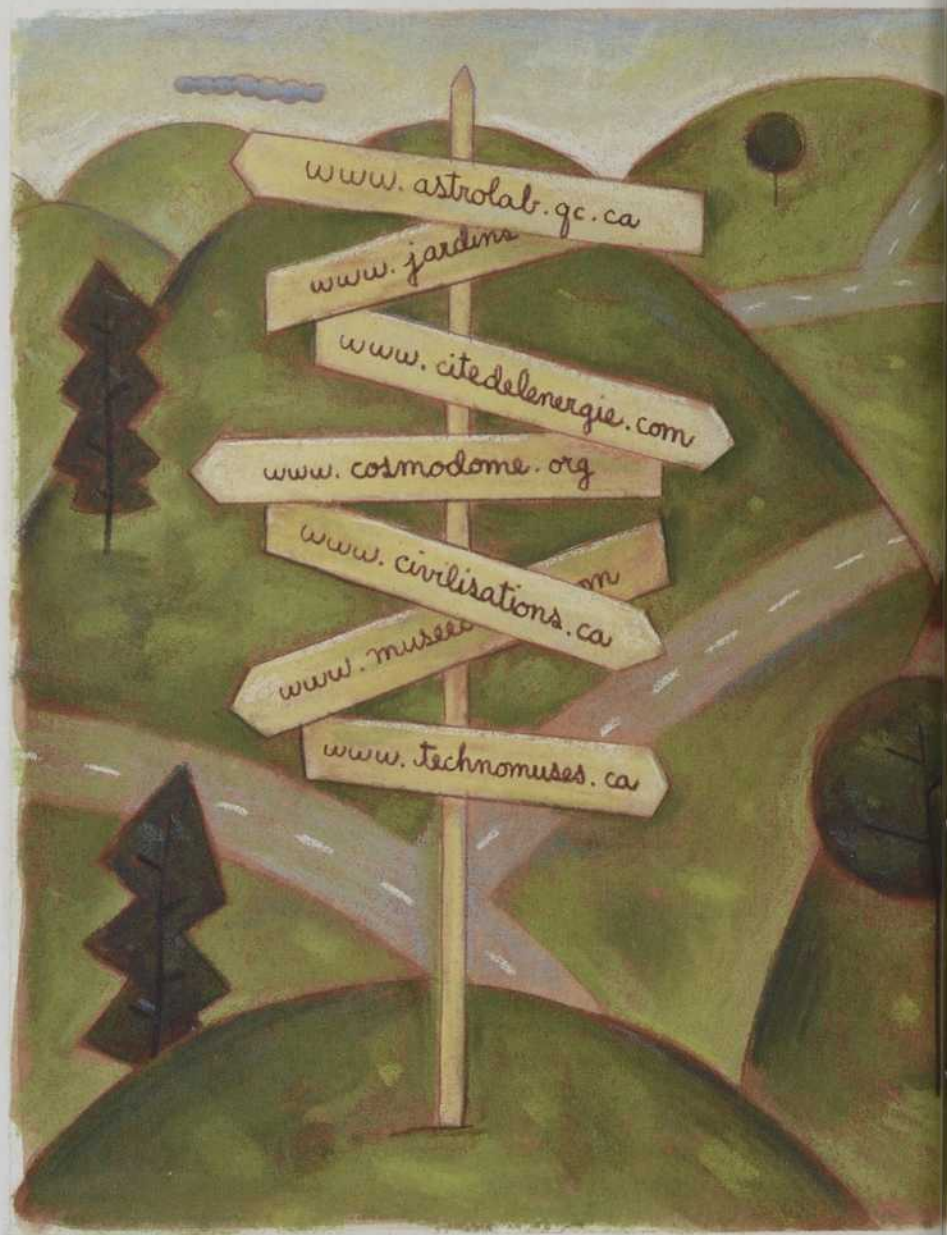 www.astrolab.qc.ca
www.jardins
www.citedelenergie.com
www.cosmodome.org
www.civilisations.ca
www.musee
www.technomuses.ca